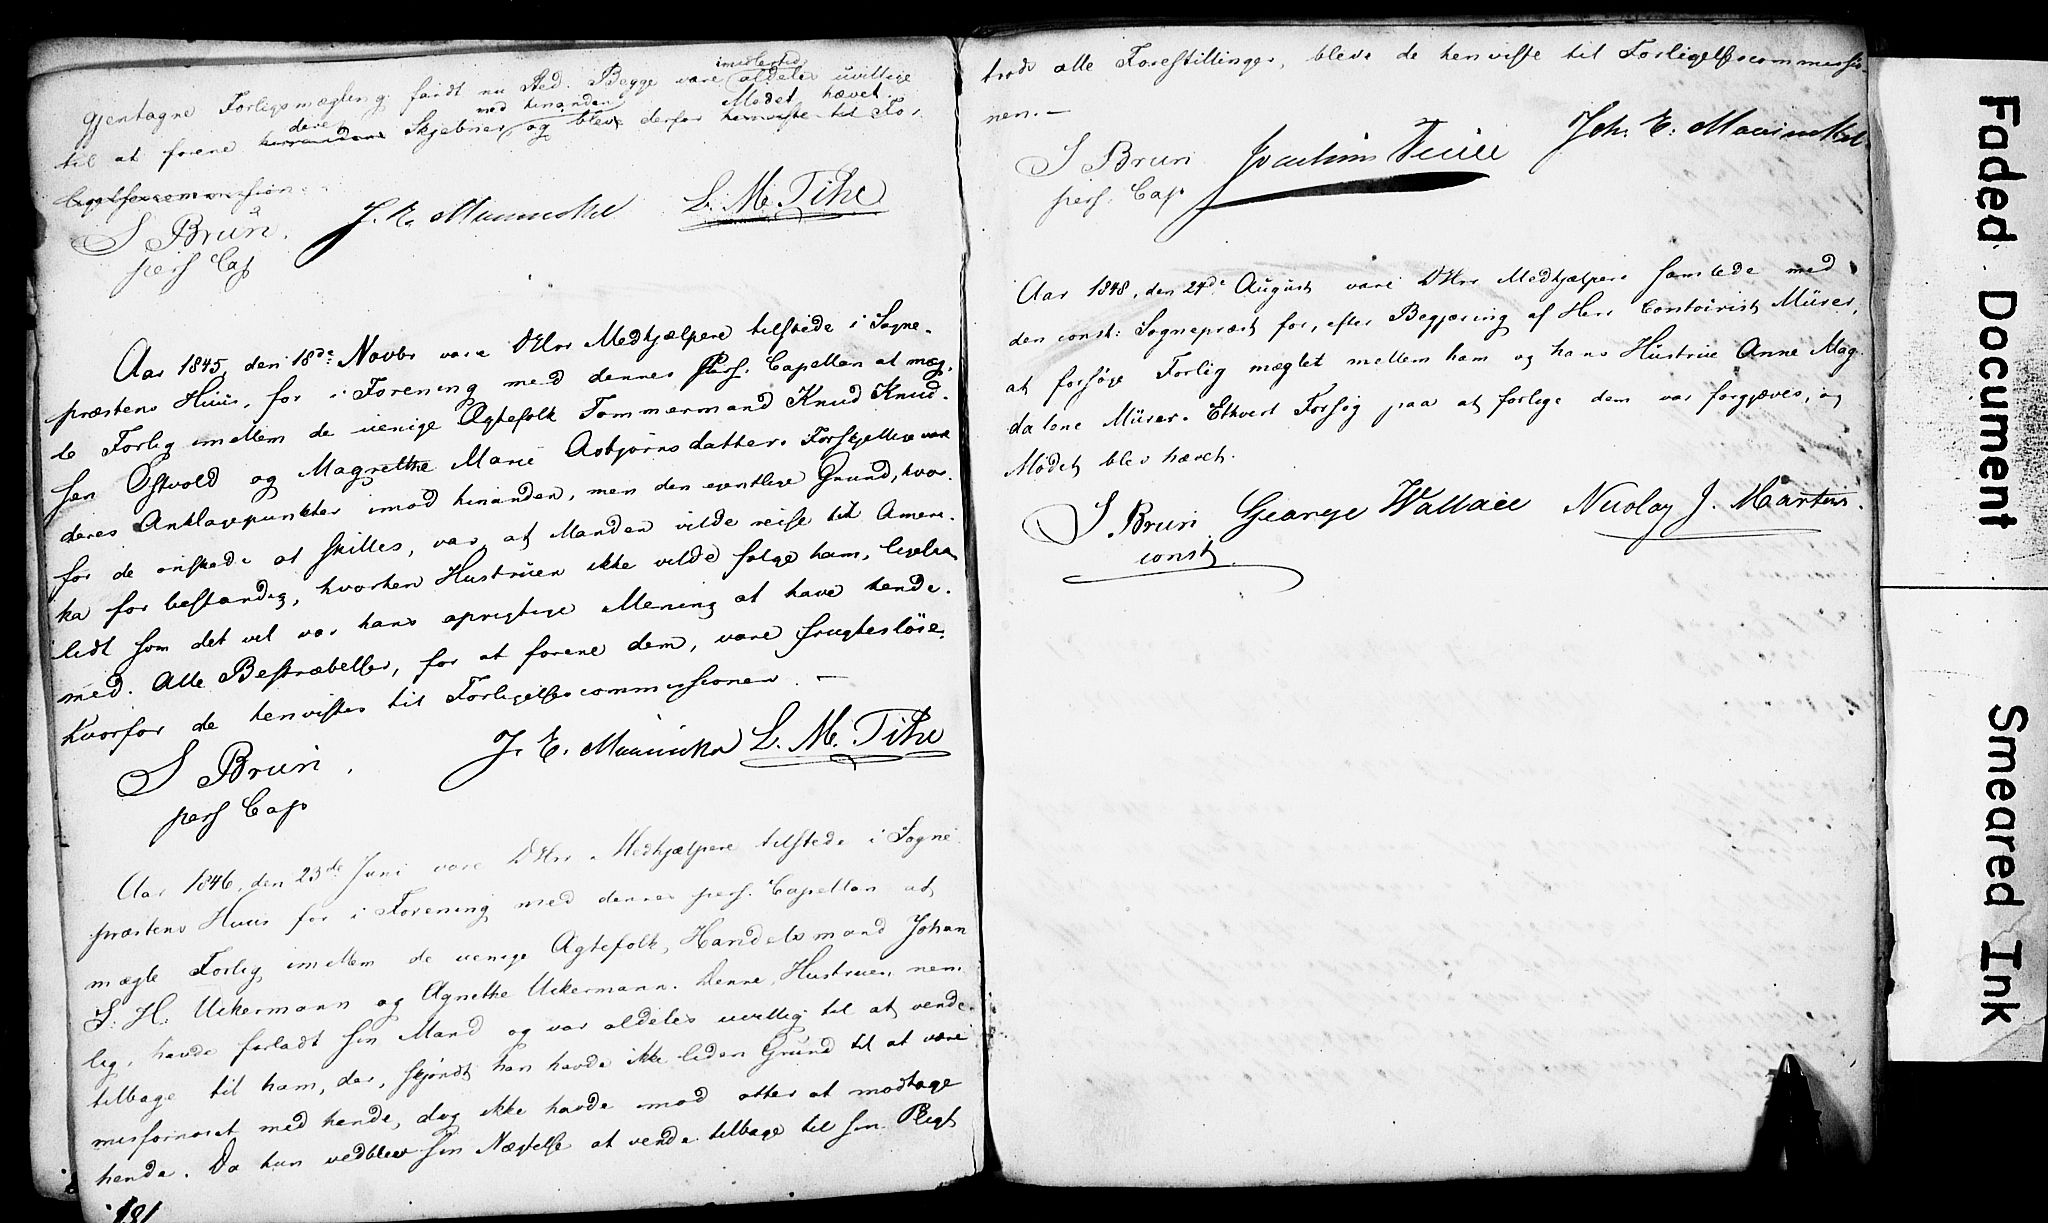 gjentagne Forligsmægling fandt nu Sted. Begge vare imidlertid aldeles uvillige
til at forene deres Skjebner med hinanden og blev derfor Mødet hævet. henviste til For-
ligelsescommission.
S Brun.
pers Cap
J. E. L. M. Tihe
Aar 1845, den 18de Novbr vare DHrr Medhjælpere tilstede i Sogne-
præstens Huus, for i Forening med dennes Pers. Capellan at mæg-
le Forlig imellem de uenige Ægtefolk Tømmermand Knud Knud-
sen Østvold og Magrethe Marie Asbjørnsdatter. Forskjellige vare
deres Anklagepunkter imod hinanden, men den egentlige Grund, hvor-
for de ønskede at skilles, var, at Manden vilde reise til Amere-
ka for bestandig, hvorhen Hustruen ikke vilde følge ham, ligesaa
lidt som det vel var hans oprigtige Mening at have hende
med. Alle Bestræbelser, for at forene dem, vare frugtesløse,
hvorfor de henvistes til Forligelsescommissionen. —
S Brun.
pers Cap
J. E. L. M. Tihe
Aar 1846, den 23de Juni vare DHrr Medhjælpere tilstede i Sogne-
præstens Huus for i Forening med dennes pers. Capellan at
mægle Forlig imellem de uenige Ægtefolk, Handelsmand Johan
S. H. Uckermann og Agnethe Uckermann. Denne, Hustruen nem-
lig, havde forladt sin Mand og var aldeles uvillig til at vende
tilbage til ham, der, skjøndt han havde ikke liden Grund til at være
misfornøiet med hende, dog ikke havde imod atter at modtage
hende. Da hun vedblev sin Nægtelse at vende tilbage til sin Pligt
181
trods alle Forestillinger, bleve de henviste til Forligelsescommissio-
nen. —
S Brun
pers. Cap
Joachim Joh. E.
Aar 1848, den 24de August vare DHrr Medhjælpere samlede med
den const: Sognepræst for, efter Begjæring af Herr Contoirist Mürer,
at forsøge Forlig mæglet mellem ham og hans Hustrue Anne Mag-
dalene Mürer. Ethvert Forsøg paa at forlige dem var forgjæves, og
Mødet blev hævet.
S. Brun
const.
George Wallace Nicolay J. Martens.
Faded Document
Smeared Ink